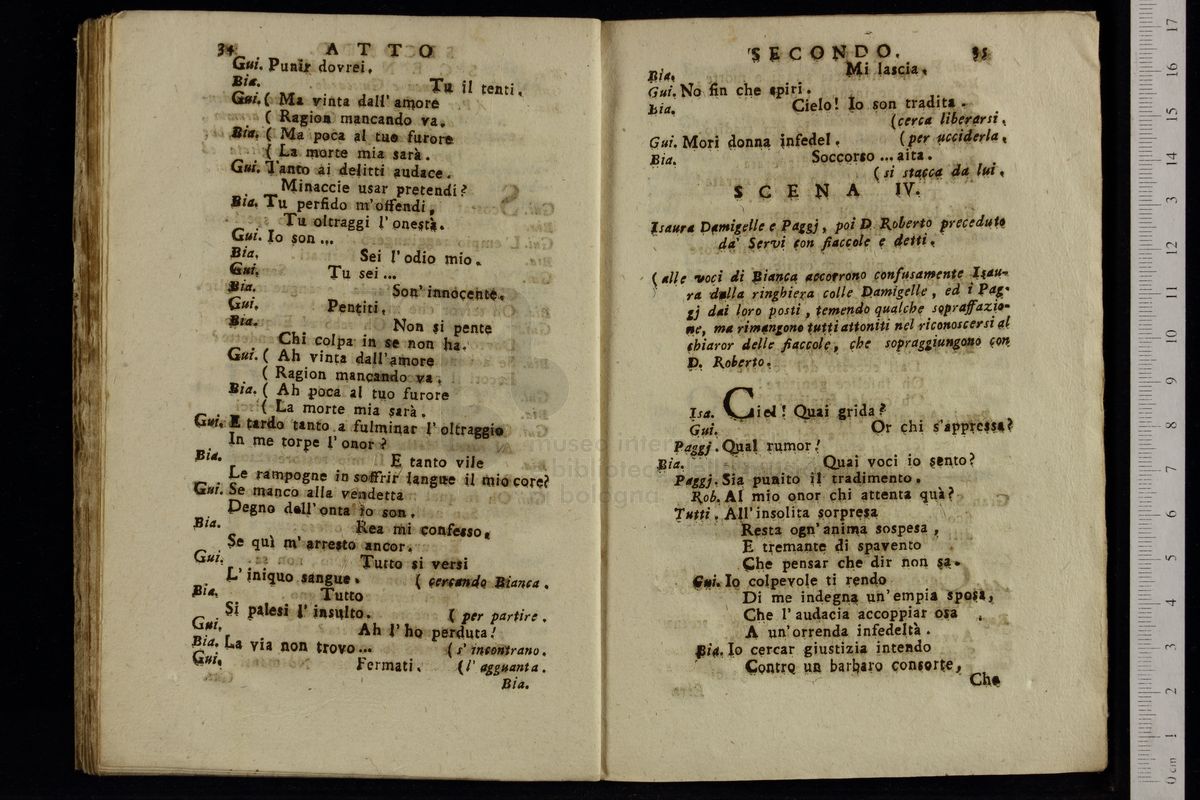 34 ATTO
Gui. Punir dovrei.
Bia. Tu il tenti.
Gui. ( Ma vinta dall' amore
( Ragion mancando va.
Bia. ( Ma poca al tuo furore
( La morte mia sarà.
Gui. Tanto ai delitti audace.
Minaccie usar pretendi?
Bia. Tu perfido m'offendi,
Tu oltraggi l'onestà.
Gui. Io son ...
Bia. Sei l'odio mio.
Gui. Tu sei ...
Bia. Son' innocente.
Gui. Pentiti.
Bia. Non si pente
Chi colpa in se non ha.
Gui. ( Ah vinta dall'amore
( Ragion mancando va.
Bia. ( Ah poca al tuo furore
( La morte mia sarà.
Gui. E tardo tanto a fulminar l'oltraggio
In me torpe l'onor?
Bia. E tanto vile
Le rampogne in soffrir langue il mio core?
Gui. Se manco alla vendetta
Degno dell'onta io son.
Bia. Rea mi confesso,
Se quì m'arresto ancor.
Gui. Tutto si versi
L'iniquo sangue. ( cercando Bianca.
Bia. Tutto
Si palesi l'insulto. ( per partire.
Gui. Ah l'ho perduta!
Bia. La via non trovo ... ( s' incontrano.
Gui. Fermati. ( l' agguanta.
Bia.
SECONDO. 35
Bia. Mi lascia.
Gui. No fin che spiri.
Bia. Cielo! Io son tradita.
(cerca liberarsi.
Gui. Mori donna infedel. (per ucciderla.
Bia. Soccorso ... aita.
( si stacca da lui.
SCENA IV.
Isaura Damigelle e Paggj, poi D. Roberto preceduto
da' Servi con fiaccole e detti.
( alle voci di Bianca accorrono confusamente Isau-
ra dalla ringhiera colle Damigelle, ed i Pag-
gj dai loro posti, temendo qualche sopraffazio-
ne, ma rimangono tutti attoniti nel riconoscersi al
chiaror delle fiaccole, che sopraggiungono con
D. Roberto.
Isa. Ciel! Quai grida?
Gui. Or chi s'appressa?
Paggj. Qual rumor!
Bia. Quai voci io sento?
Paggj. Sia punito il tradimento.
Rob. Al mio onor chi attenta quà?
Tutti. All'insolita sorpresa
Resta ogn'anima sospesa,
E tremante di spavento
Che pensar che dir non sa.
Gui. Io colpevole ti rendo
Di me indegna un'empia sposa,
Che l'audacia accoppiar osa
A un'orrenda infedeltà.
Bia. Io cercar giustizia intendo
Contro un barbaro consorte,
Che
museo inter
biblioteca della musica
bologna
17
16
15
14
13
12
11
10
9
8
7
6
5
4
3
2
1
0 cm